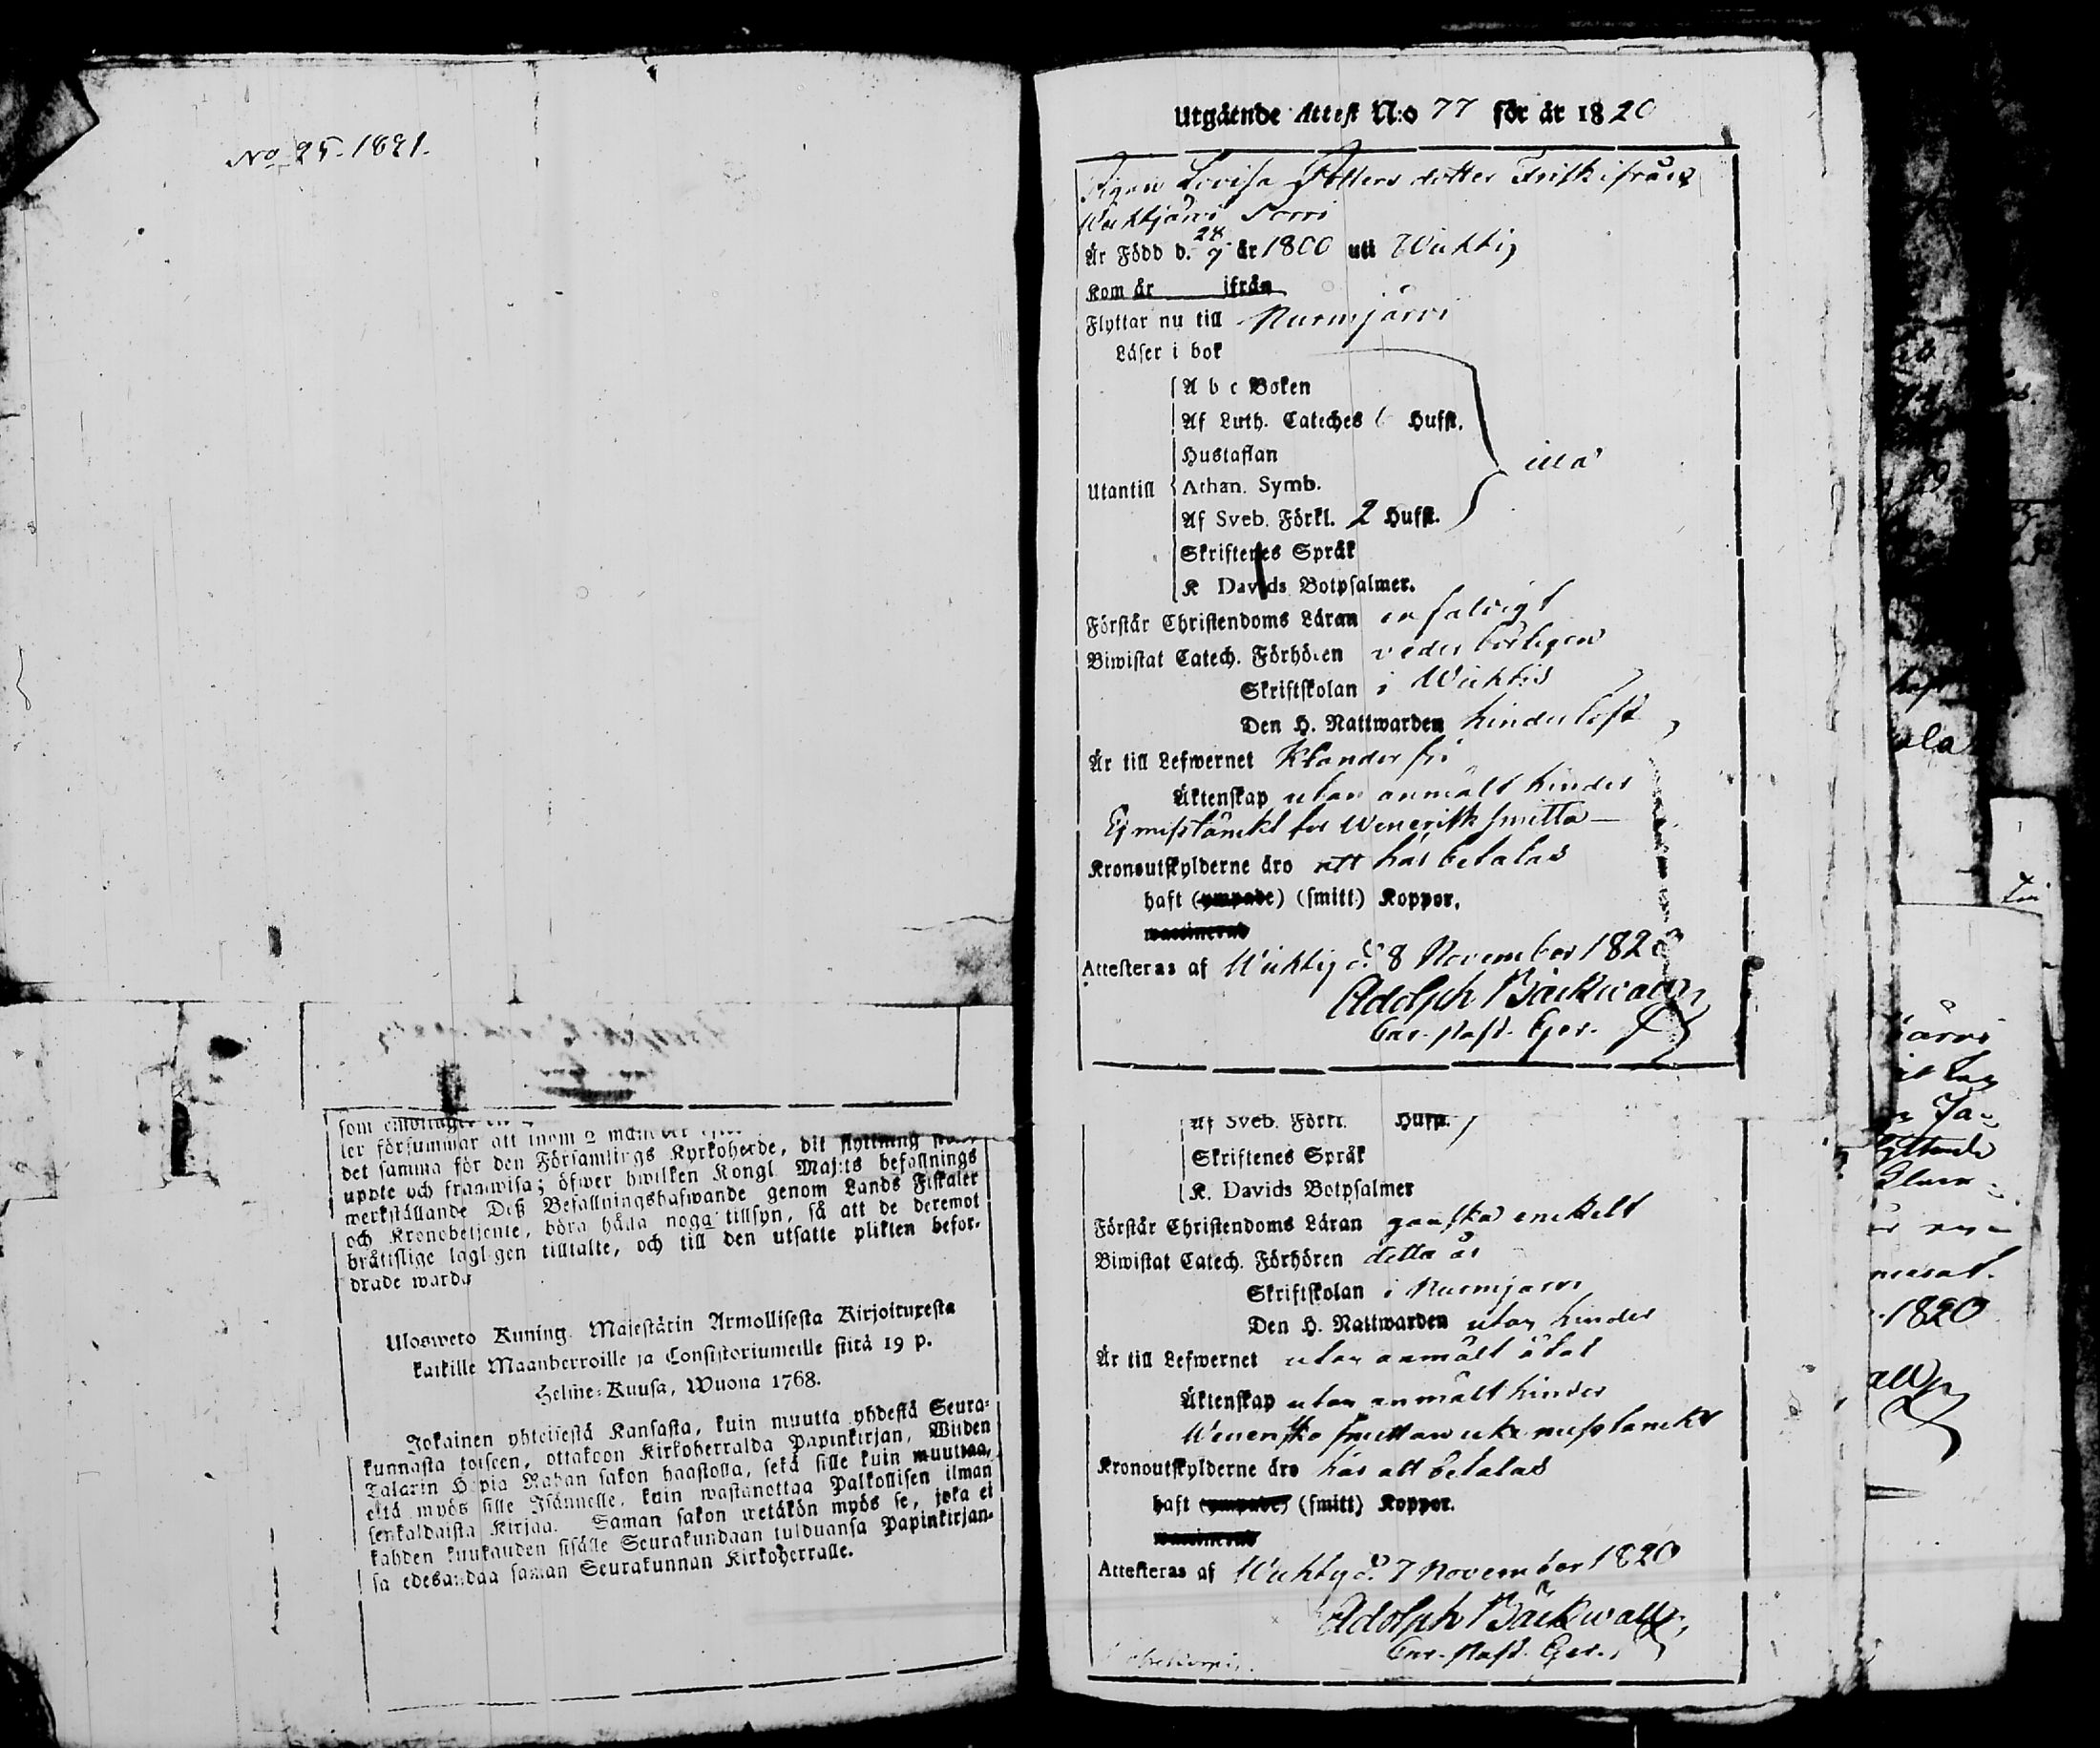 No 25. 1821.
som
ler försummar att inom 2 månader
det samma för den Församlings Kyrkoherde, dit flyttning
uppte och framwisa; öfwer hwilken Kongl. Maj:ts befallnings
werkställande Deß Befallningshafwande genom Lands Fiskaler
och Kronobetjente, böra hålla noga tillsyn, så att de deremot
bråttslige lagligen tilltalte, och till den utsatte plikten befor-
drade warda
Ulosweto Kuning. Majestätin Armollisesta Kirjoituxesta
kaikille Maanherroille ja Consistoriumeille siitä 19 p.
Helme-Kuusa, Wuona 1768.
Jokainen yhteisestä Kansasta, kuin muutta yhdestä Seura-
kunnasta toiseen, ottakoon Kirkoherralda Papinkirjan, Wiiden
Talarin Hopia Rahan sakon haastolla, sekä sille kuin muuttaa,
että myös sille Isännelle, kuin wastanottaa Palkollisen ilman
senkaldaista Kirjaa. Saman sakon wetäkön myös se, joka ei
kahden kuukauden sisälle Seurakundaan tulduansa Papinkirjan-
sa edesandaa saman Seurakunnan Kirkoherralle.
Utgående Attest N:o 77 för år 1820
Pigan Lovisa dotter Frisk ifrån
Wichtjärvi Sorri
Är Född d. 28/9 år 1800 uti Wichtis
Kom år ifrån
Flyttar nu till Nurmijärvi
Läser i bok
A b c Boken
Af Luth. Cateches 6 Hufst.
Hustaflan
Utantill Athan. Symb. illa
Af Sveb. Förkl. 2 Hufst.
Skriftenes Språk
K Davids Botpsalmer.
Förstår Christendoms Läran enfaldigt
Biwistat Catech. Förhören vederbörligen
Skriftskolan i Wichtis
Den H. Nattwarden hinderlöst
Är till Lefwernet Klanderfri
Äktenskap utan anmält hinder
Ej misstänckt för Wenerisk smitta
Kronoutskylderne äro att här betalas
haft (ympade) (smitt) Koppor.
waccinerad
Attesteras af Wichtis d. 8 November 1820
Adolph Bäckwall
Past.
Af Sveb. Förkl. Hufst.
Skriftenes Språk
K. Davids Botpsalmer
Förstår Christendoms Läran ganska enckelt
Biwistat Catech. Förhören detta år
Skriftskolan i Nurmijärvi
Den H. Nattwarden utan hinder
Är till Lefwernet utan anmält åtal
Äktenskap utan anmält hinder
Weneriska smittan icke misstänckt
Kronoutskylderne äro här att betalas
haft (ympade) (smitt) Koppor.
waccinerad
Attesteras af Wichtis d. 7 November 1820
Adolph Bäckwall
Past.
1820